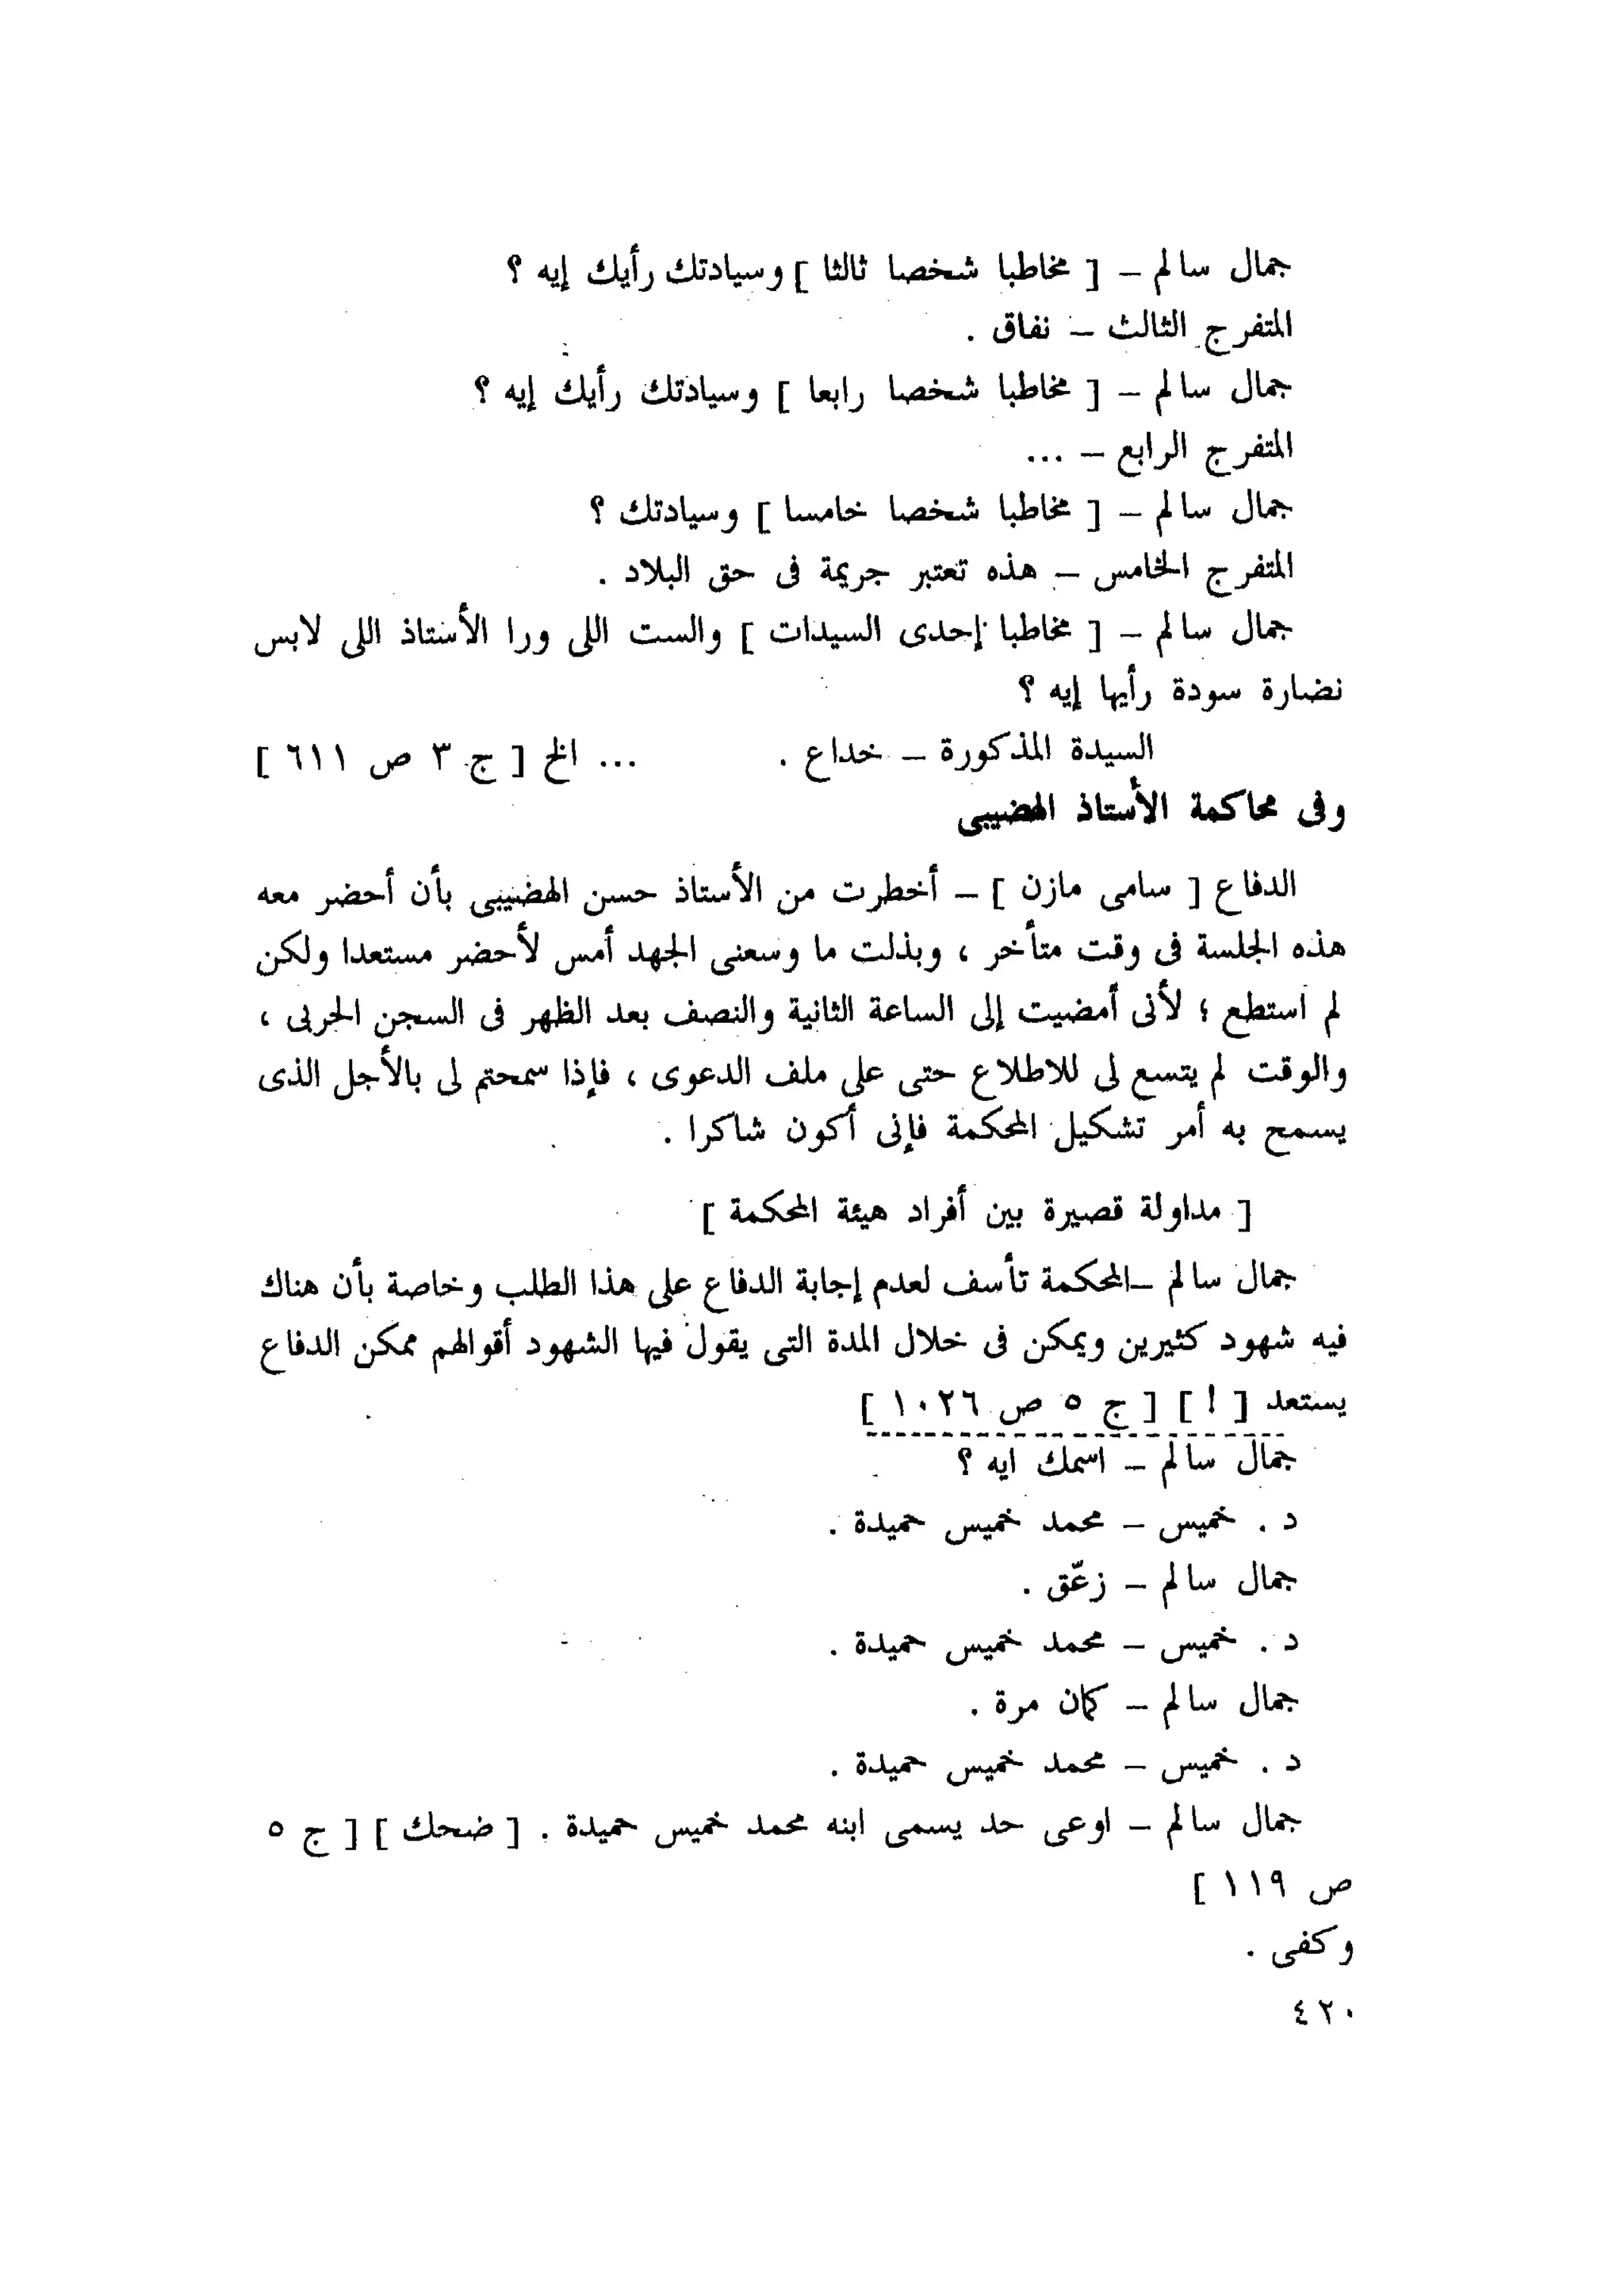 جمال سالم – [ مخاطبا شخصا ثالثا ] وسيادتك رأيك إيه ؟
المتفرج الثالث – نفاق .
جمال سالم – [ مخاطبا شخصا رابعا ] وسيادتك رأيك إيه ؟
المتفرج الرابع – ...
جمال سالم – [ مخاطبا شخصا خامسا ] وسيادتك ؟
المتفرج الخامس – هذه تعتبر جريمة فى حق البلاد .
جمال سالم – [ مخاطبا إحدى السيدات ] والست اللى ورا الأستاذ اللى لابس
نضارة سودة رأيها إيه ؟
السيدة المذكورة – خداع . ... الخ [ ج ٣ ص ٦١١ ]
وفى محاكمة الأستاذ الهضيبى
الدفاع [ سامى مازن ] – أخطرت من الأستاذ حسن الهضيبى بأن أحضر معه
هذه الجلسة فى وقت متأخر ، وبذلت ما وسعنى الجهد أمس لأحضر مستعدا ولكن
لم استطع ؛ لأنى أمضيت إلى الساعة الثانية والنصف بعد الظهر فى السجن الحربى ،
والوقت لم يتسع لى للاطلاع حتى على ملف الدعوى ، فإذا سمحتم لى بالأجل الذى
يسمح به أمر تشكيل المحكمة فإنى أكون شاكرا .
[ مداولة قصيرة بين أفراد هيئة المحكمة ]
جمال سالم –المحكمة تأسف لعدم إجابة الدفاع على هذا الطلب وخاصة بأن هناك
فيه شهود كثيرين ويمكن فى خلال المدة التى يقول فيها الشهود أقوالهم ممكن الدفاع
يستعد [ ! ] [ ج ٥ ص ١٠٢٦ ]
جمال سالم – اسمك ايه ؟
د . خميس – محمد خميس حميدة .
جمال سالم – زعّق .
د . خميس – محمد خميس حميدة .
جمال سالم – كمان مرة .
د . خميس – محمد خميس حميدة .
جمال سالم – اوعى حد يسمى ابنه محمد خميس حميدة . [ ضحك ] [ ج ٥
ص ١١٩ ]
وكفى .
٤٢٠